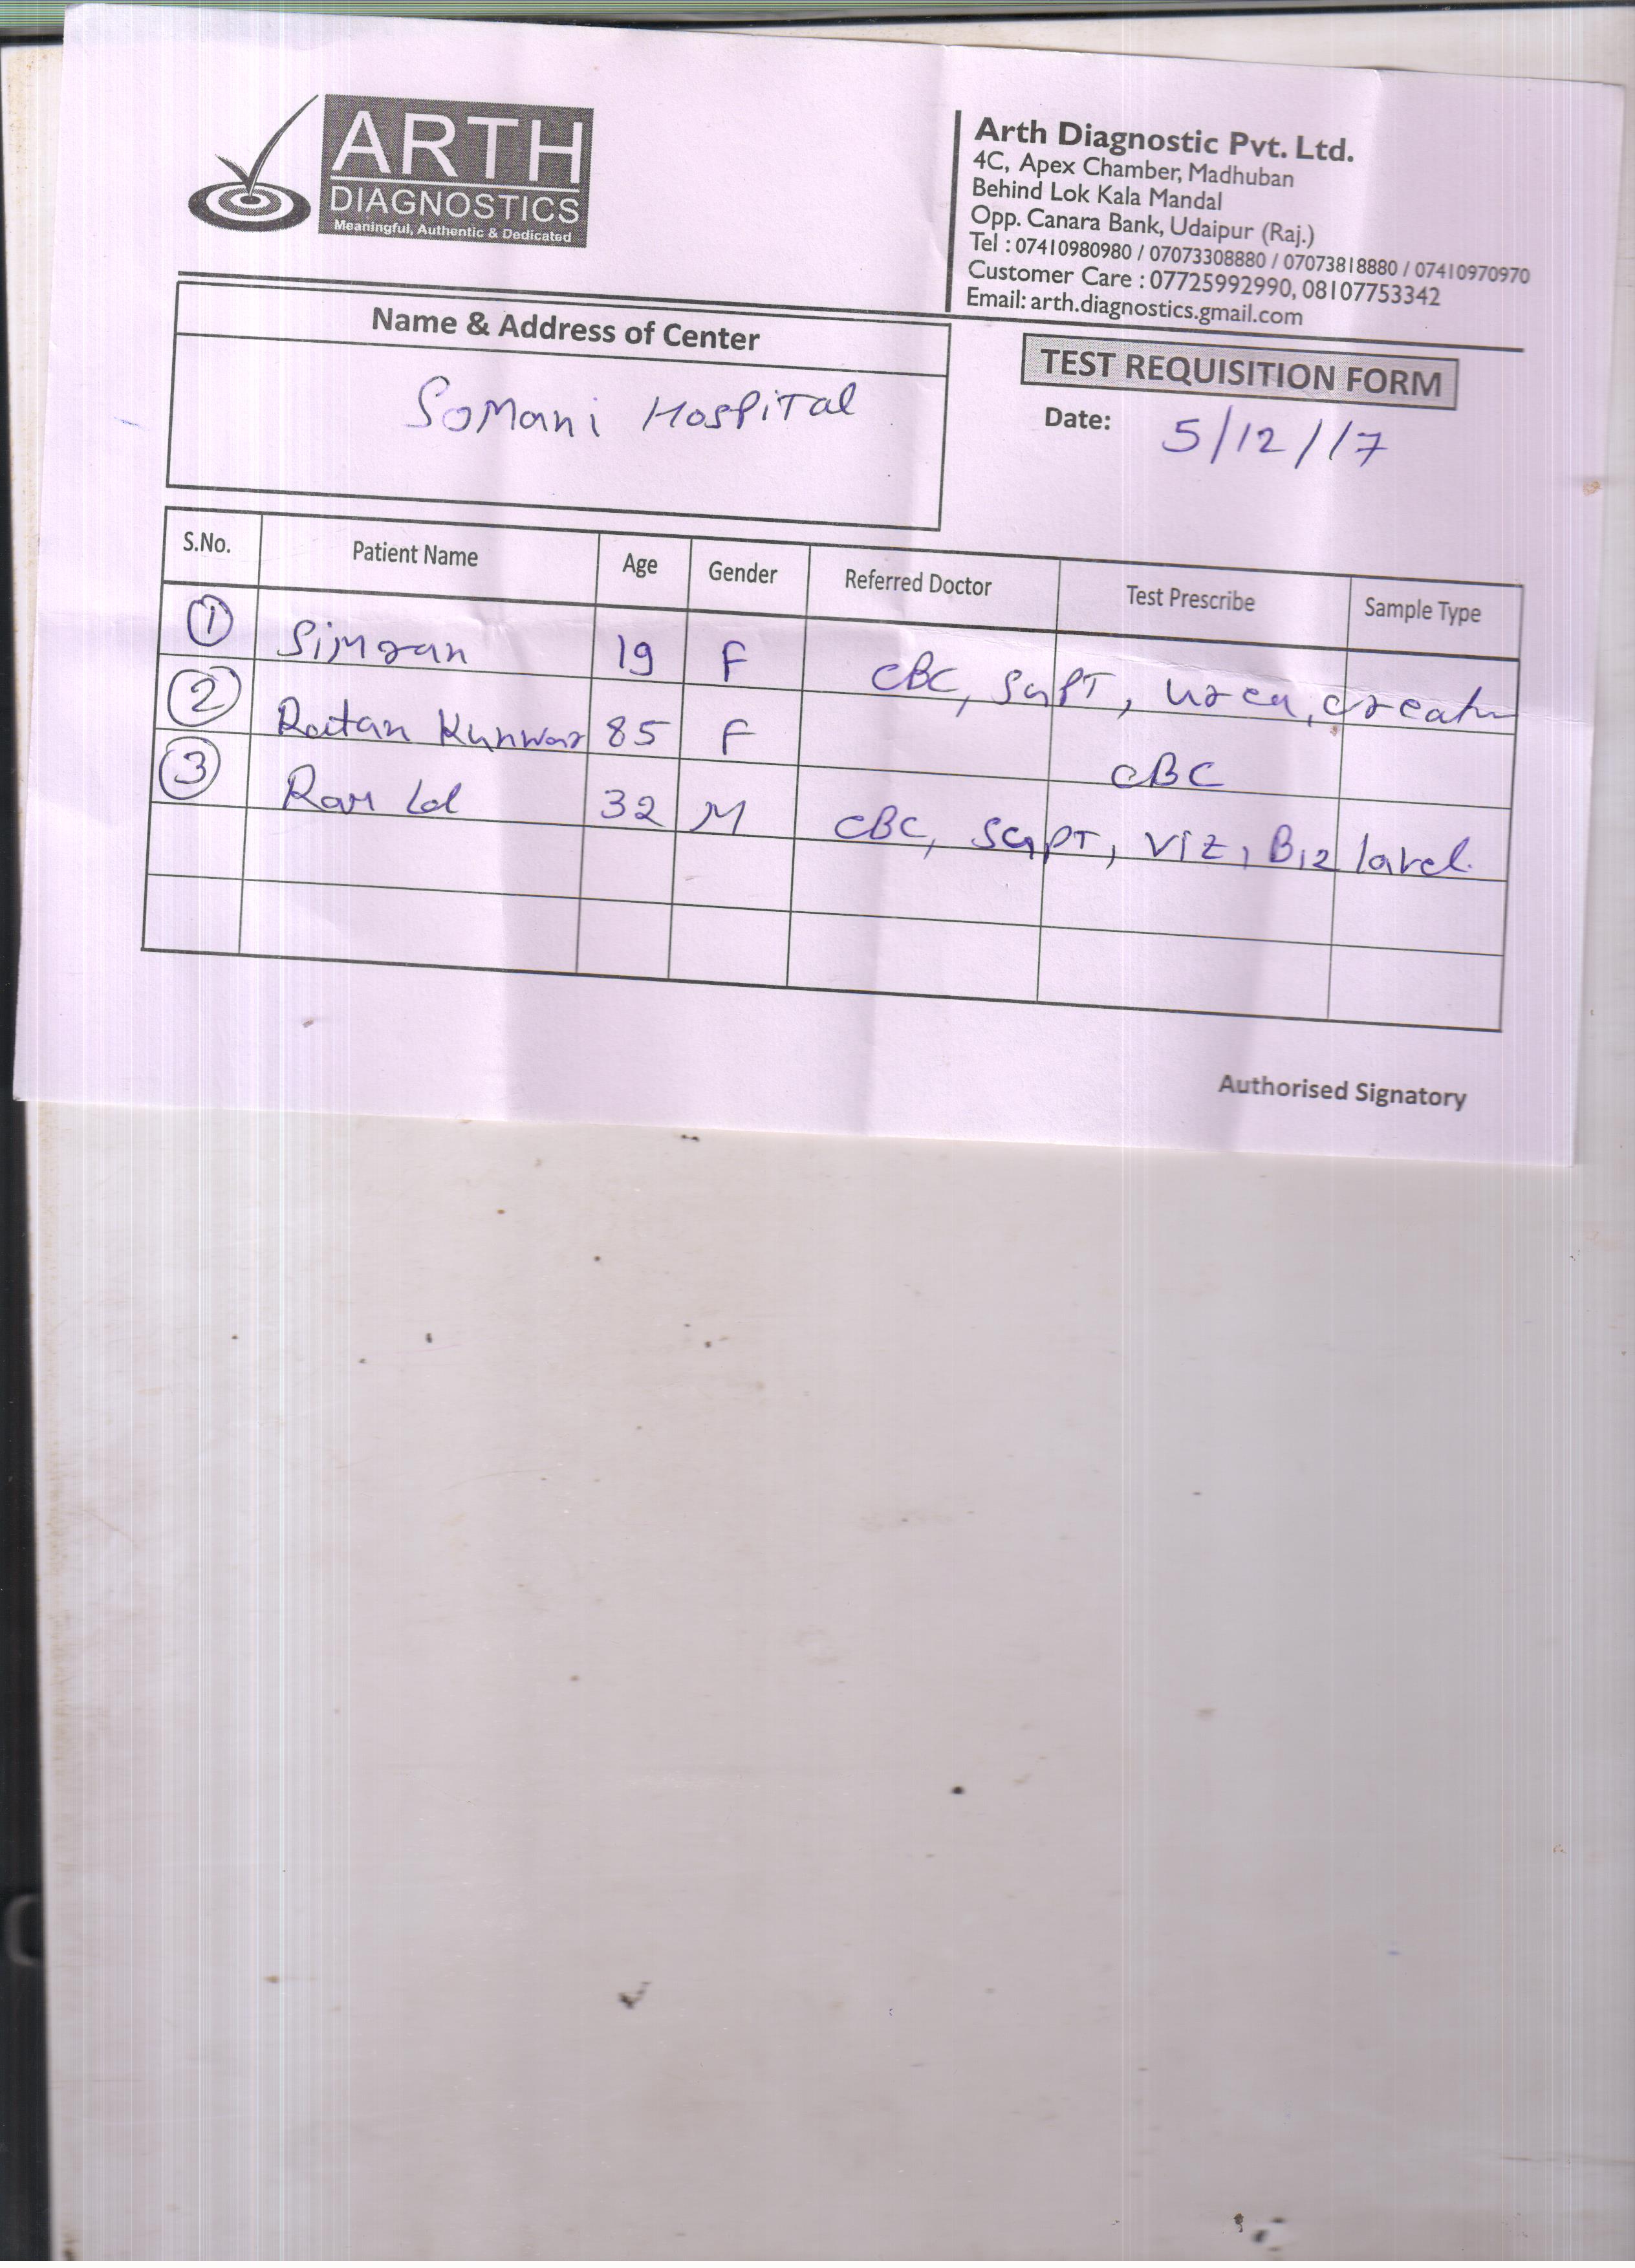 ARTH
DIAGNOSTICS
Meaningful, Authentic & Dedicated
Arth Diagnostic Pvt. Ltd.
4C, Apex Chamber, Madhuban
Behind Lok Kala Mandal
Opp. Canara Bank, Udaipur (Raj.)
Tel : 07410980980 / 07073308880 / 07073818880 / 07410970970
Customer Care : 07725992990, 08107753342
Email: arth.diagnostics.gmail.com
Name & Address of Center
SoMani HospiTal
TEST REQUISITION FORM
Date: 5/12/17
S.No. Patient Name Age Gender Referred Doctor Test Prescribe Sample Type
1 Simran 19 F CBC, SGPT, Urea, creatn
2 Ratan Kunwar 85 F CBC
3 Ram Lal 32 M CBC, SGPT, Viz, B12 lavel.
Authorised Signatory